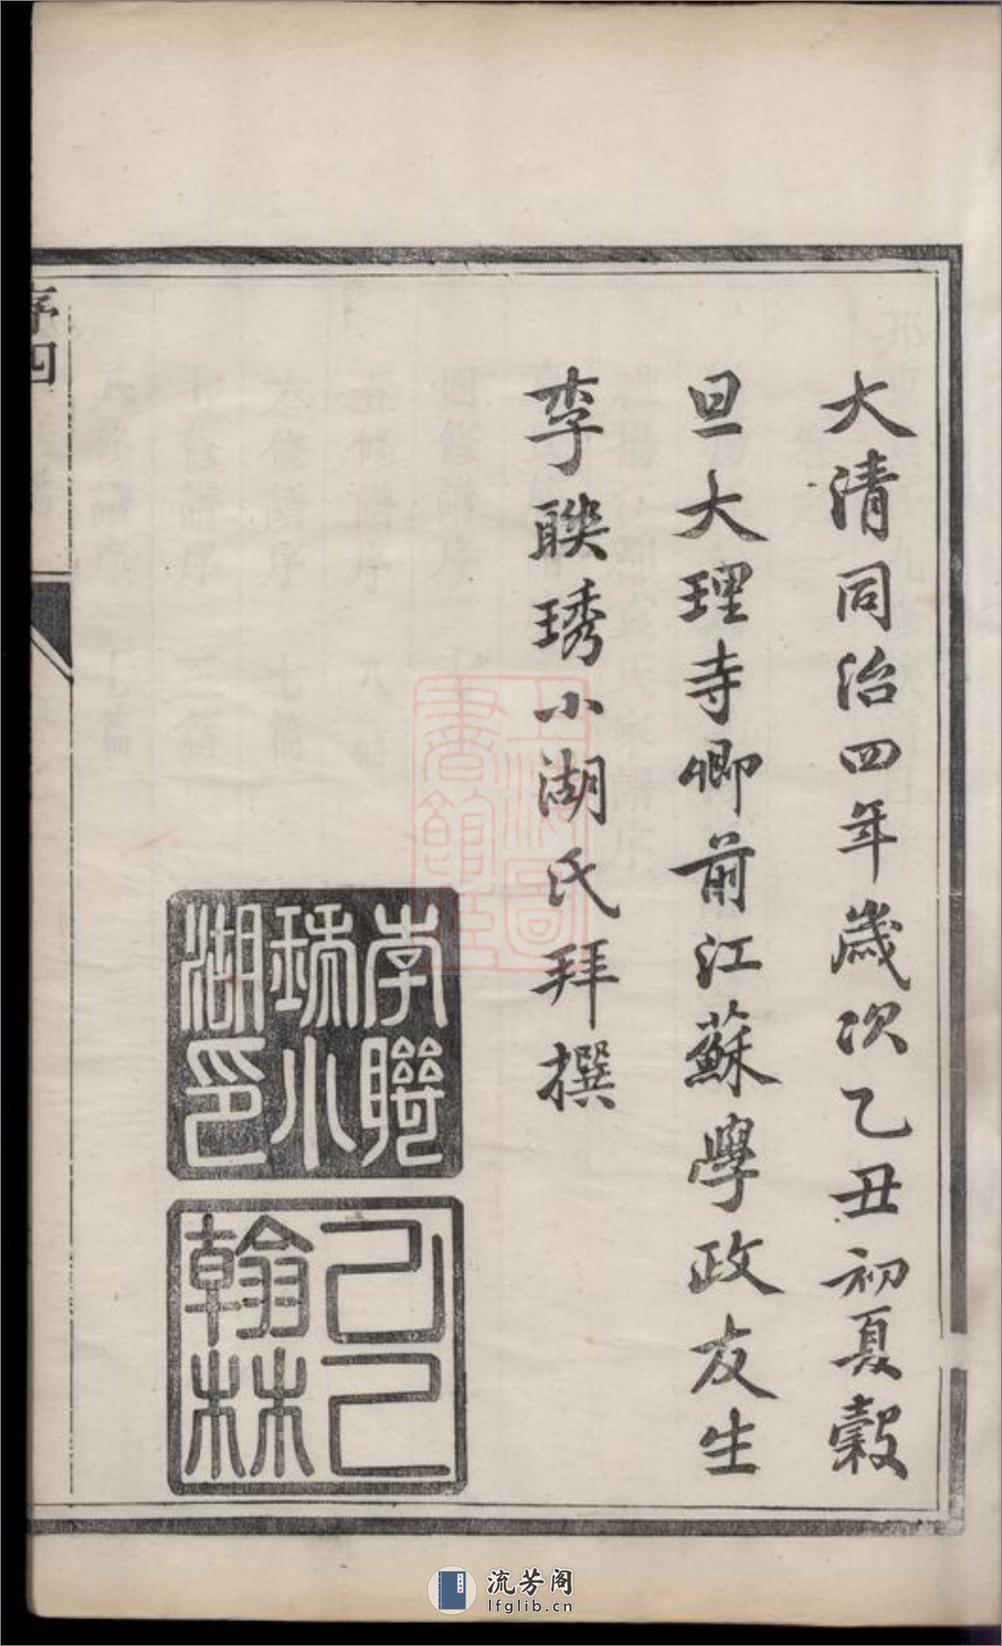 大清同治四年歲次乙丑初夏穀
旦大理寺卿前江蘇學政友生
李聯琇小湖氏拜撰
李聯
琇小
湖印
己巳
翰林
序四
上海圖
書館藏
流芳阁
lfglib.cn